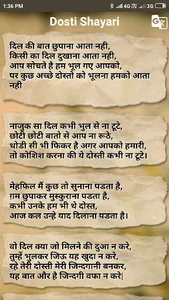 1:36 PM
4G 3G
Dosti Shayari
G
दिल की बात छुपाना आता नही,
किसी का दिल दुखाना आता नही,
आप सोचते है हम भूल गए आपको,
पर कुछ अच्छे दोस्तो को भूलना हमको आता
नही
नाजुक सा दिल कभी भुल से ना टूटे,
छोटी छोटी बातो से आप ना रूठे,
थोडी सी भी फिकर है अगर आपको हमारी,
तो कोशिश करना की ये दोस्ती कभी ना टूटे.
मेहफिल मैं कुछ तो सुनाना पडता है,
ग़म छुपाकर मुस्कुराना पडता है,
कभी उनके हम भी थे दोस्त,
आज कल उन्हे याद दिलाना पडता है।
वो दिल क्या जो मिलने की दुआ न करे,
तुम्हें भुलकर जिऊ यह खुदा न करे,
रहे तेरी दोस्ती मेरी जिन्दगानी बनकर,
यह बात और है जिन्दगी वफा न करे|